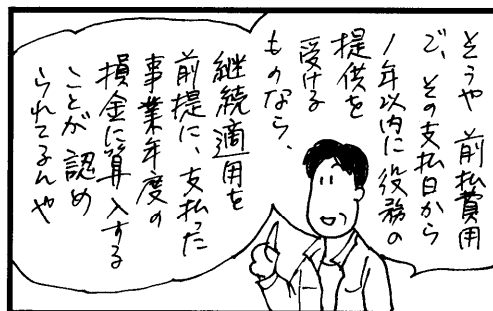 そうや 前払費用
で、その支払日から
1年以内に役務の
提供を
受ける
ものなら、
継続適用を
前提に、支払った
事業年度の
損金に算入する
ことが認め
られてるんや